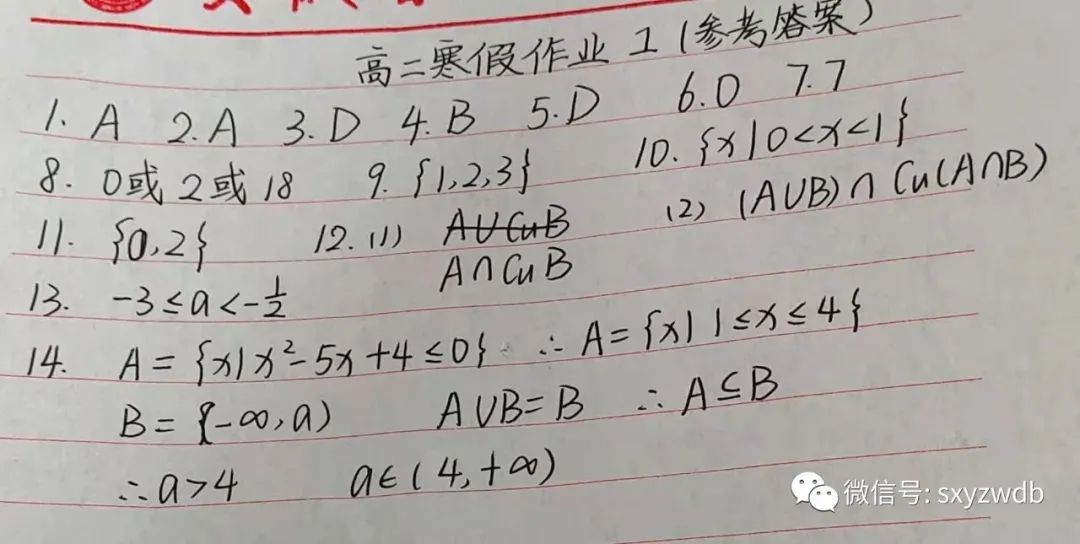 高二寒假作业 1 (参考答案)
1. A 2. A 3. D 4. B 5. D 6. D 7. 7
8. 0或 2或 18 9. {1,2,3} 10. {x|0<x<1}
11. {0,2} 12. (1) A∪CuB (2) (A∪B)∩Cu(A∩B)
A∩CuB
13. -3≤a<-1/2
14. A={x|x²-5x+4≤0} ∴A={x|1≤x≤4}
B={-∞,a) A∪B=B ∴A⊆B
∴a>4 a∈(4,+∞)
微信号: sxyzwdb